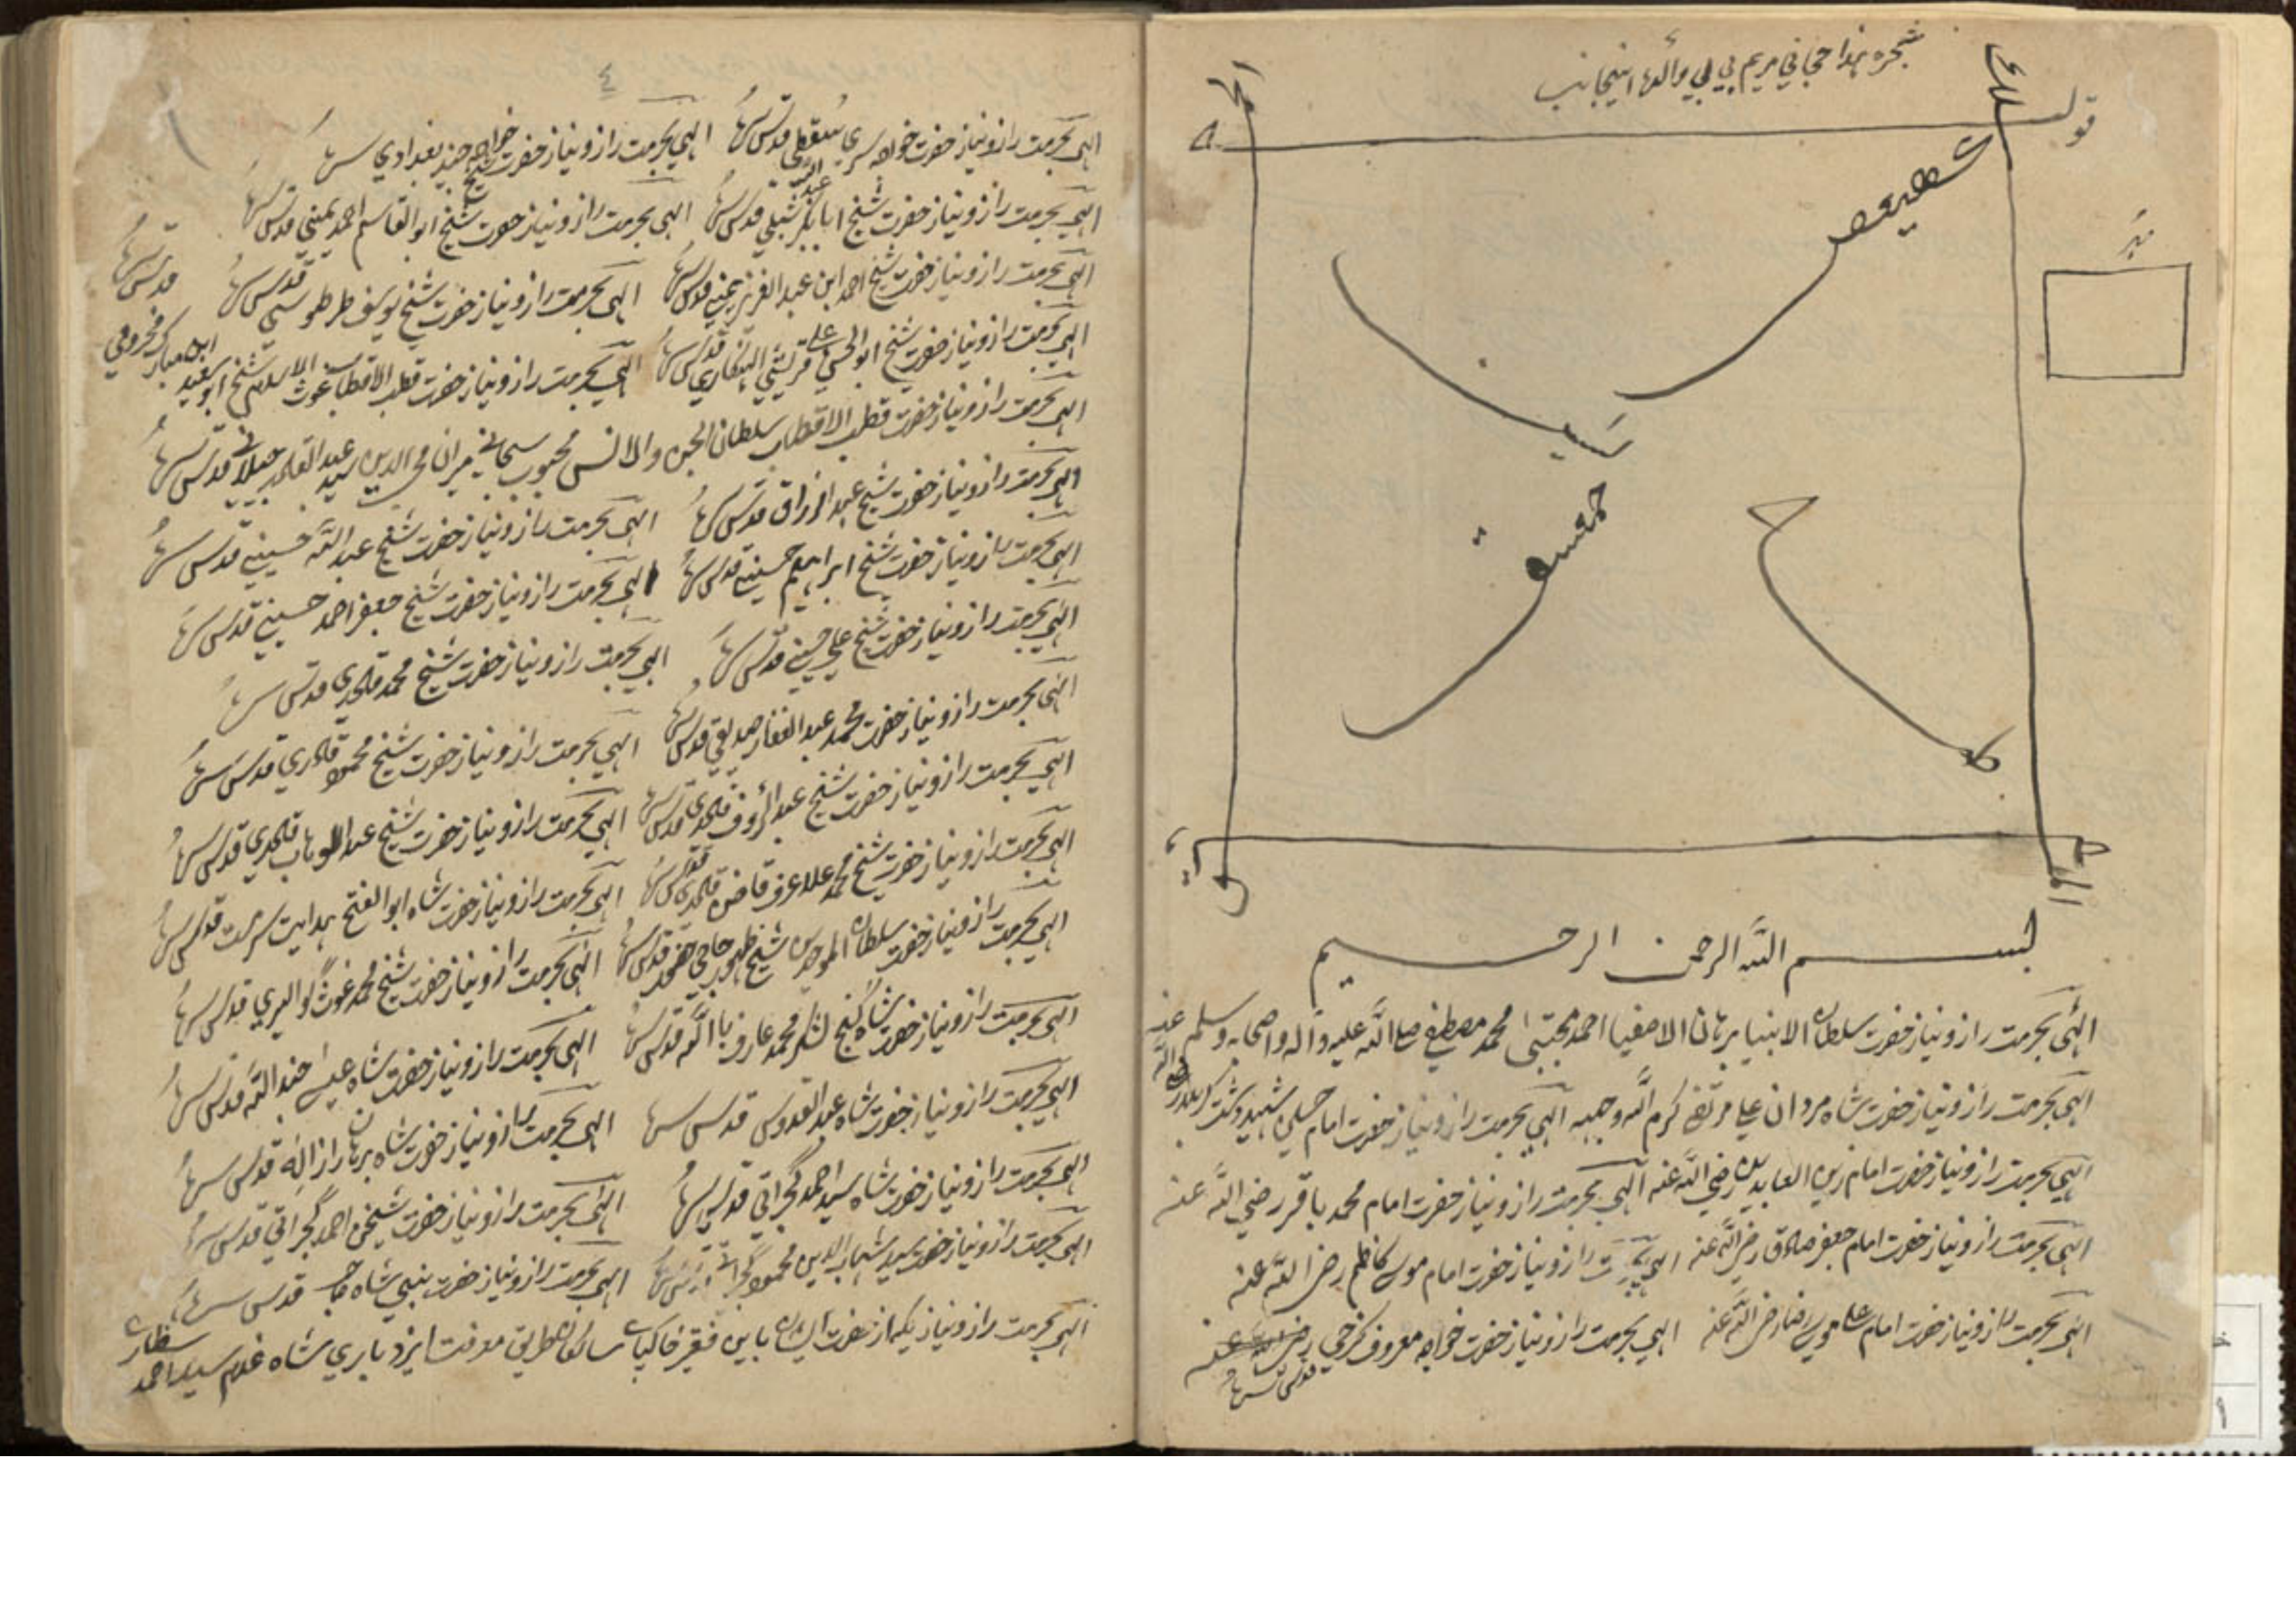 شجره هذا حجاني مريم بي بي والدهٔ اينجانب
قولہ
مہر
كهيعص
حمعسق
بسم الله الرحمن الرحيم
الهي بحرمت راز و نياز حضرت سلطان الانبيا برهان الاصفيا احمد مجتبىٰ محمد مصطفى صلى الله عليه وآله واصحابه وسلم
الهي بحرمت راز و نياز حضرت شاه مردان علي مرتضى كرم الله وجهه الهي بحرمت راز و نياز حضرت امام حسين شهيد دشت كربلا رضي الله عنه
الهي بحرمت راز و نياز حضرت امام زين العابدين رضي الله عنه الهي بحرمت راز و نياز حضرت امام محمد باقر رضي الله عنه
الهي بحرمت راز و نياز حضرت امام جعفر صادق رضي الله عنه الهي بحرمت راز و نياز حضرت امام موسى كاظم رضي الله عنه
الهي بحرمت راز و نياز حضرت امام علي موسى رضا رضي الله عنه الهي بحرمت راز و نياز حضرت خواجه معروف كرخي قدس سره
٤
الهي بحرمت راز و نياز حضرت خواجه سري سقطي قدس سره الهي بحرمت راز و نياز حضرت خواجه جنيد بغدادي سره
الهي بحرمت راز و نياز حضرت شيخ ابابكر شبلي قدس سره الهي بحرمت راز و نياز حضرت شيخ ابو القاسم احمد يمني قدس سره
الهي بحرمت راز و نياز حضرت شيخ احمد ابن عبد العزيز يمني قدس سره الهي بحرمت راز و نياز حضرت شيخ يوسف طرطوسي قدس سره
الهي بحرمت راز و نياز حضرت شيخ ابو الحسن علي قريشي الهنكاري قدس سره الهي بحرمت راز و نياز حضرت قطب الاقطاب غوث الاسلام شيخ ابو سعيد ابن مبارك مخزومي قدس سره
الهي بحرمت راز و نياز حضرت قطب الاقطاب سلطان الجن والانس محبوب سبحاني ميران محي الدين سيد عبد القادر جيلاني قدس سره
الهي بحرمت راز و نياز حضرت شيخ عبد الرزاق قدس سره الهي بحرمت راز و نياز حضرت شيخ عبد الله حسيني قدس سره
الهي بحرمت راز و نياز حضرت شيخ ابراهيم حسيني قدس سره الهي بحرمت راز و نياز حضرت شيخ جعفر احمد حسيني قدس سره
الهي بحرمت راز و نياز حضرت شيخ علي حسيني قدس سره الهي بحرمت راز و نياز حضرت شيخ محمد قادري قدس سره
الهي بحرمت راز و نياز حضرت محمد عبد الغفار صديقي قدس سره الهي بحرمت راز و نياز حضرت شيخ محمود قادري قدس سره
الهي بحرمت راز و نياز حضرت شيخ عبد الرؤف قادري قدس سره الهي بحرمت راز و نياز حضرت شيخ عبد الوهاب قادري قدس سره
الهي بحرمت راز و نياز حضرت شيخ محمد علا عرف قاضن قادري قدس سره الهي بحرمت راز و نياز حضرت شاه ابو الفتح هدايت سرمست قدس سره
الهي بحرمت راز و نياز حضرت سلطان الموحدين شيخ ظهور حاجي حضور قدس سره الهي بحرمت راز و نياز حضرت شيخ محمد غوث گواليري قدس سره
الهي بحرمت راز و نياز حضرت شاه گنج لشكر محمد عارف با الله قدس سره الهي بحرمت راز و نياز حضرت شاه عيسى جند الله قدس سره
الهي بحرمت راز و نياز حضرت شاه عبد القدوس قدس سره الهي بحرمت راز و نياز حضرت شاه برهان راز اله قدس سره
الهي بحرمت راز و نياز حضرت شاه سيد احمد گجراتي قدس سره الهي بحرمت راز و نياز حضرت شيخن احمد گجراتي قدس سره
الهي بحرمت راز و نياز حضرت سيد شهاب الدين محمود گجراتي قدس سره الهي بحرمت راز و نياز حضرت بني شاه قدس سره
الهي بحرمت راز و نياز يكباز حضرت ايشان باين فقير خاكپاى سالكان طريق معرفت ايزد باري شاه غلام سيد احمد شطاري